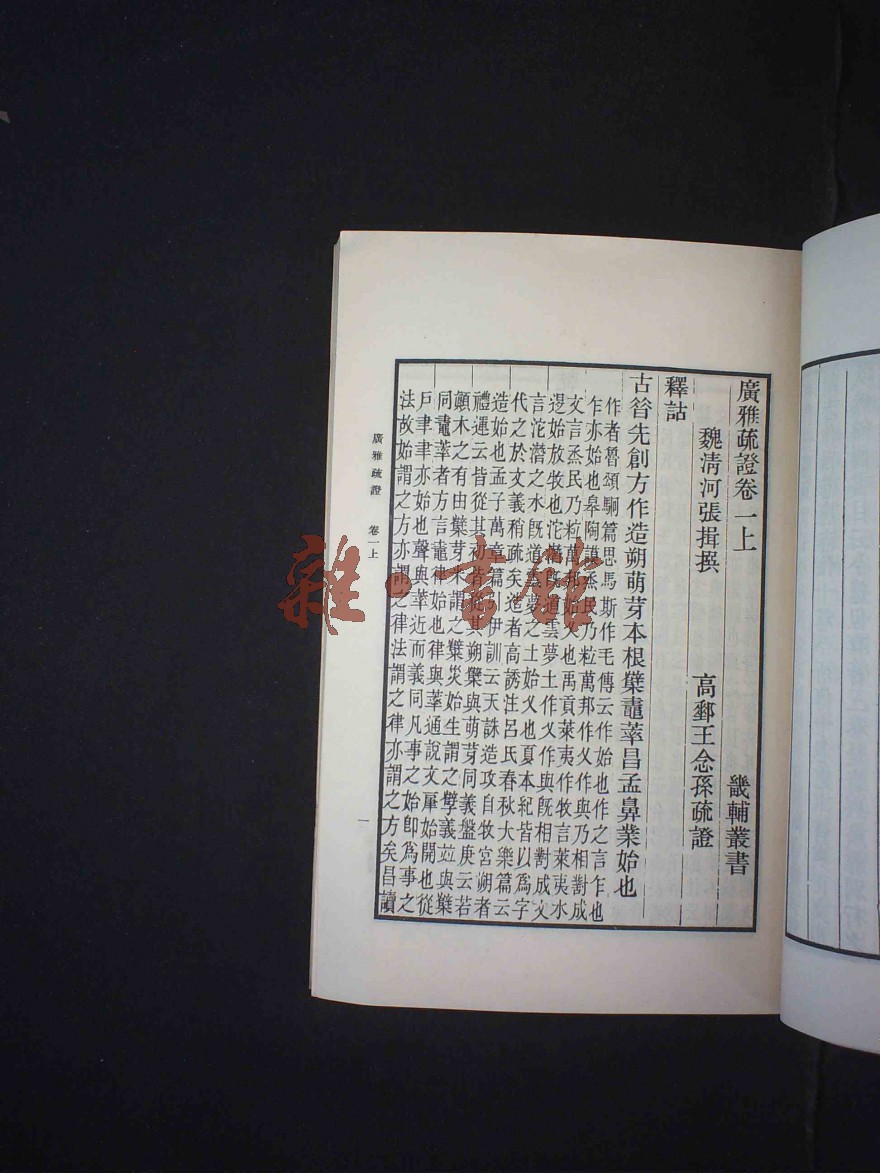 廣雅疏證卷一上
畿輔叢書
魏清河張揖撰
高郵王念孫疏證
釋詁
古昝先創方作造朔萌芽本根櫱鼃䔞昌孟鼻業始也
作者魯頌駉篇思馬斯作毛傳云作始也作之言乍也
乍亦始也皋陶謨烝民乃粒萬邦作乂作與乃相對成
文言烝民乃粒萬邦始乂也禹貢萊夷作牧言萊夷水
退始放牧也沱潛既道雲夢土作乂作與既相對成文
言沱潛之水既道雲夢之土始乂也夏本紀皆以為字
代之於文義稍疏矣造者高誘注呂氏春秋大樂篇云
造始也孟子萬章篇引伊訓云天誅造攻自牧宮朔者
禮運云皆從其初皆從其朔櫱與萌芽同義盤庚云若
顛木之有由櫱芽米謂之櫱災始生謂之孽義竝與櫱
同鼃䔞者方言鼃律始也律與䔞通說文肁始開也從
戶聿聿亦始也聲與䔞近而義同凡事之始即為事之
法故始謂之方亦謂之律法謂之律亦謂之方矣昌讀
廣雅疏證 卷一上
一
雜·書館